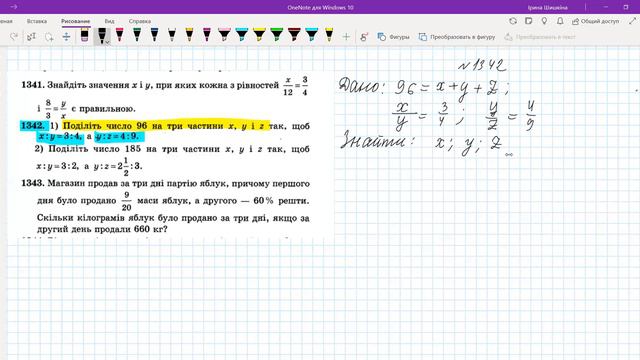 OneNote для Windows 10
Ірина Шишкіна
Рисование
Общий доступ
Фигуры
Преобразовать в фигуру
Преобразовать в
1341. Знайдіть значення x і y, при яких кожна з рівностей x/12 = 3/4
і 8/3 = y/x є правильною.
1342. 1) Поділіть число 96 на три частини x, y і z так, щоб
x:y=3:4, а y:z=4:9.
2) Поділіть число 185 на три частини x, y і z так, щоб
x:y=3:2, а y:z=2 1/2:3.
1343. Магазин продав за три дні партію яблук, причому першого
дня було продано 9/20 маси яблук, а другого — 60% решти.
Скільки кілограмів яблук було продано за три дні, якщо за
другий день продали 660 кг?
№1342
Дано: 96 = x+y+z;
x/y = 3/4; y/z = 4/9
Знайти: x; y; z